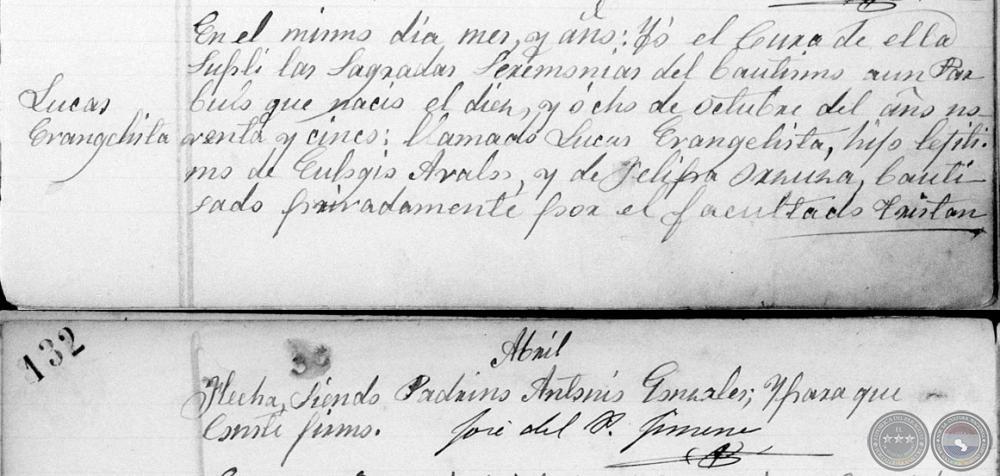 En el mismo dia mes, y año: Yó el Cura de ella
Supli las Sagradas Seremonias del bautismo a un Par
Lucas
bulo que nacio el diez, y ócho de octubre del año no-
Evangelista
venta y cinco: llamado Lucas Evangelista, hijo lejiti-
mo de Eulogio Avalos, y de Felipa, bauti
sado privadamente por el facultado Tristan
132
Abril
Flecha, Siendo Padrino Antonio Gonzales; Y para que
Conste firmo. José del R. Jimene